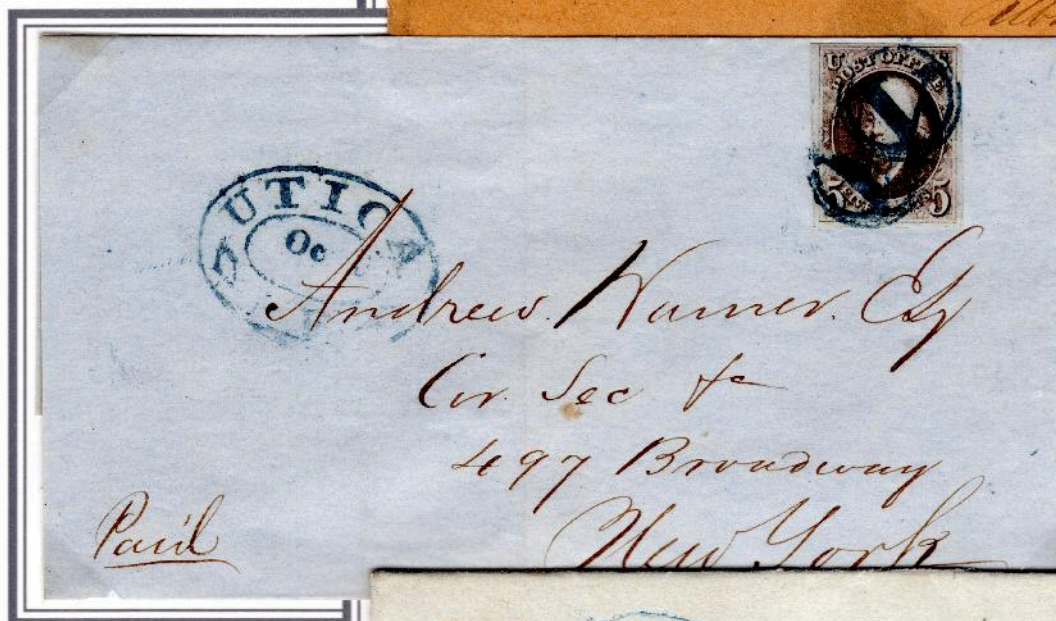 U S
POST OFFICE
5 5
UTICA
Oc
Andrew Warner. Esq
Cor Sec &c
497 Broadway
New York
Paid